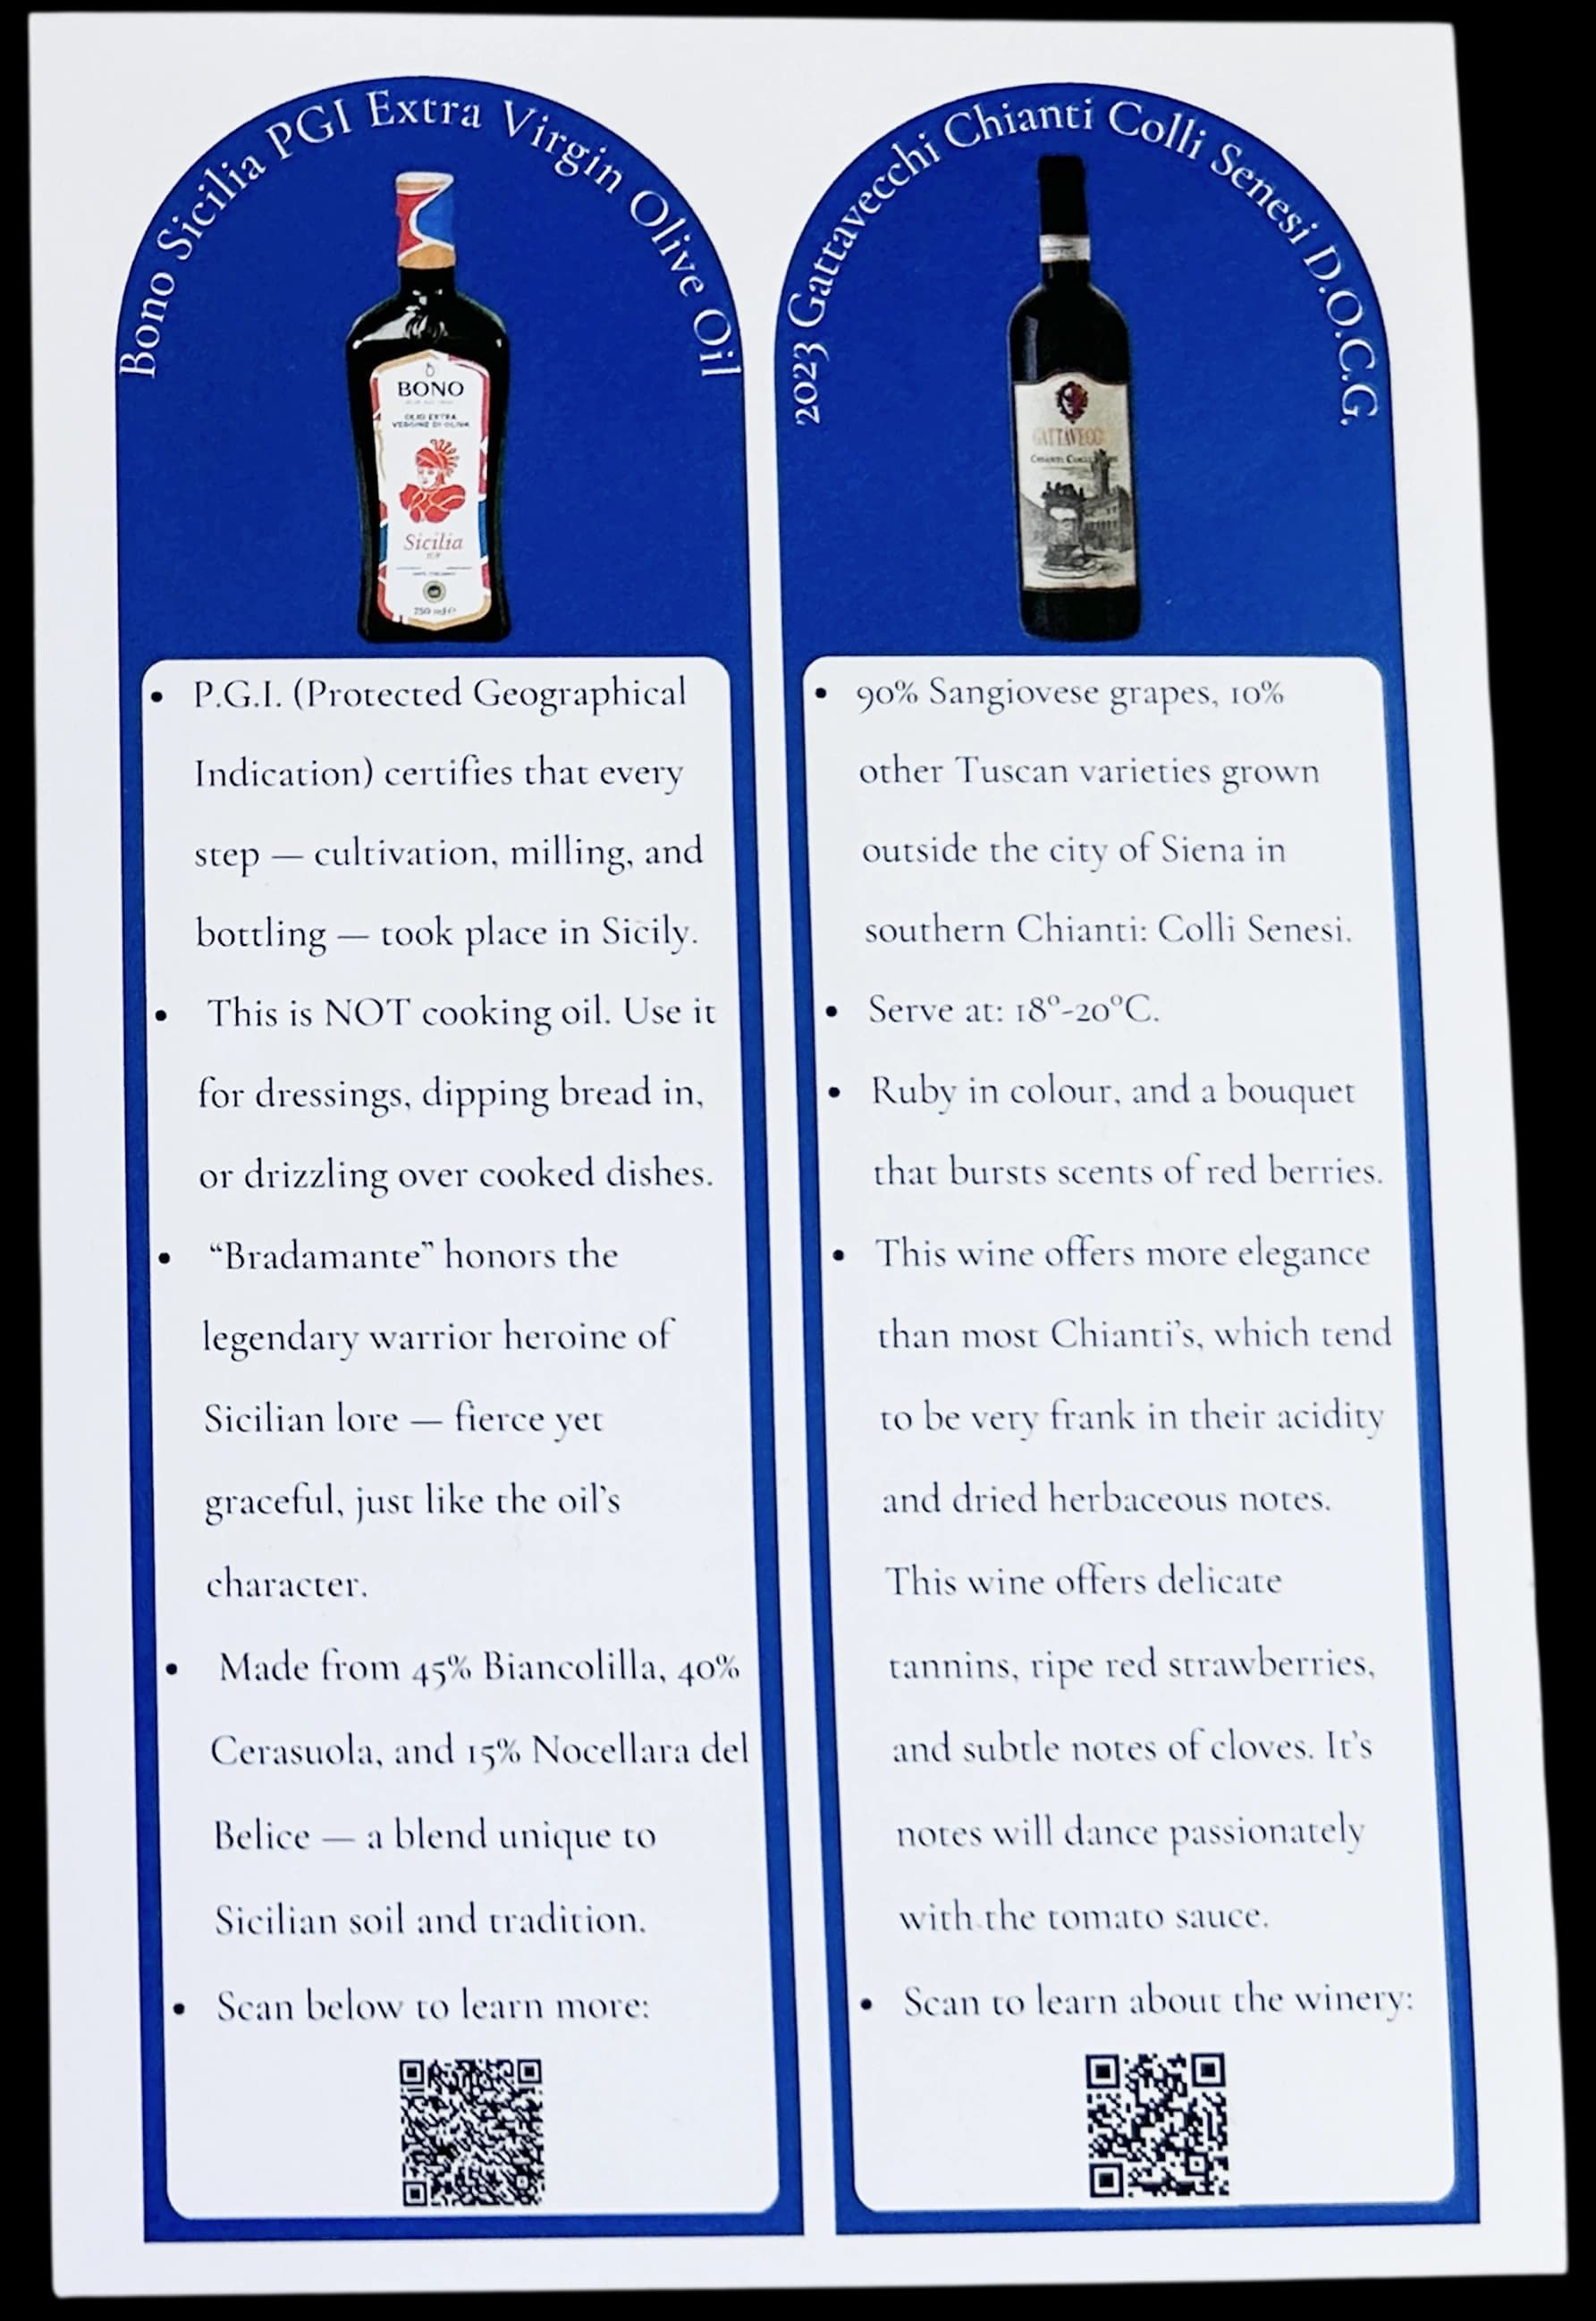 Bono Sicilia PGI Extra Virgin Olive Oil
BONO
OLIO EXTRA
VERGINE DI OLIVA
Sicilia
IGP
250 ml e
• P.G.I. (Protected Geographical
Indication) certifies that every
step — cultivation, milling, and
bottling — took place in Sicily.
• This is NOT cooking oil. Use it
for dressings, dipping bread in,
or drizzling over cooked dishes.
• “Bradamante” honors the
legendary warrior heroine of
Sicilian lore — fierce yet
graceful, just like the oil’s
character.
• Made from 45% Biancolilla, 40%
Cerasuola, and 15% Nocellara del
Belice — a blend unique to
Sicilian soil and tradition.
• Scan below to learn more:
2023 Gattavecchi Chianti Colli Senesi D.O.C.G.
GATTAVECC
Chianti Colli
• 90% Sangiovese grapes, 10%
other Tuscan varieties grown
outside the city of Siena in
southern Chianti: Colli Senesi.
• Serve at: 18°-20°C.
• Ruby in colour, and a bouquet
that bursts scents of red berries.
• This wine offers more elegance
than most Chianti’s, which tend
to be very frank in their acidity
and dried herbaceous notes.
This wine offers delicate
tannins, ripe red strawberries,
and subtle notes of cloves. It’s
notes will dance passionately
with the tomato sauce.
• Scan to learn about the winery: